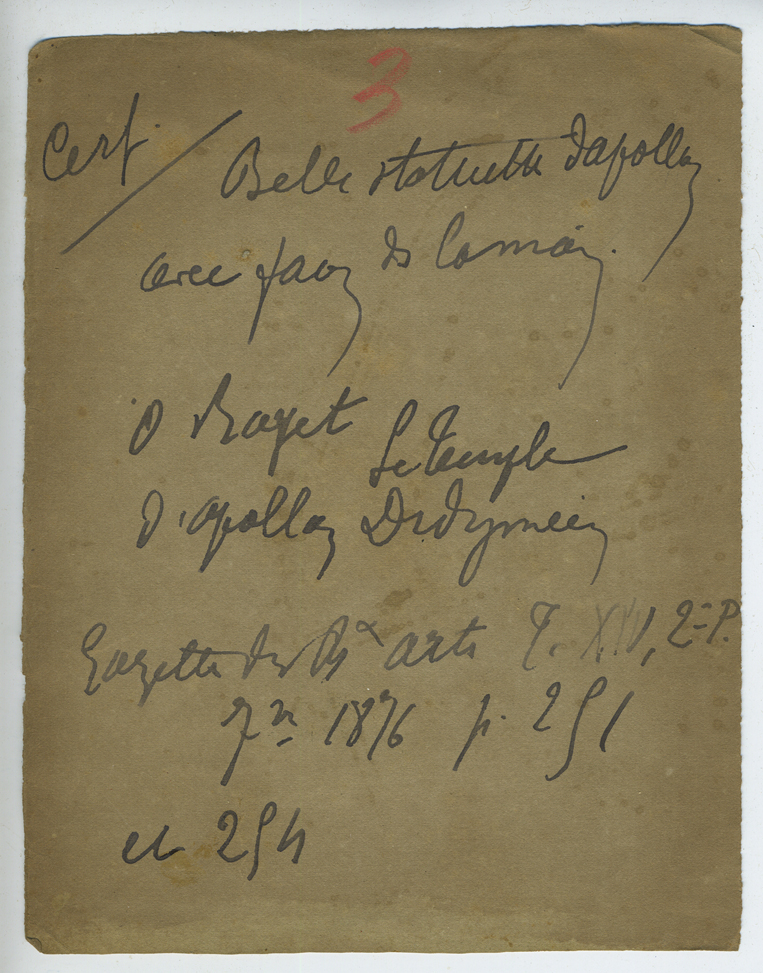 3
Cerf. / Belle statuette d'apollon
avec faon ds la main.
O Rayet Le Temple
d'apollon Didyméen
Gazette des Bx arts T. XIV, 2e P.
7re 1876 p. 251
et 254